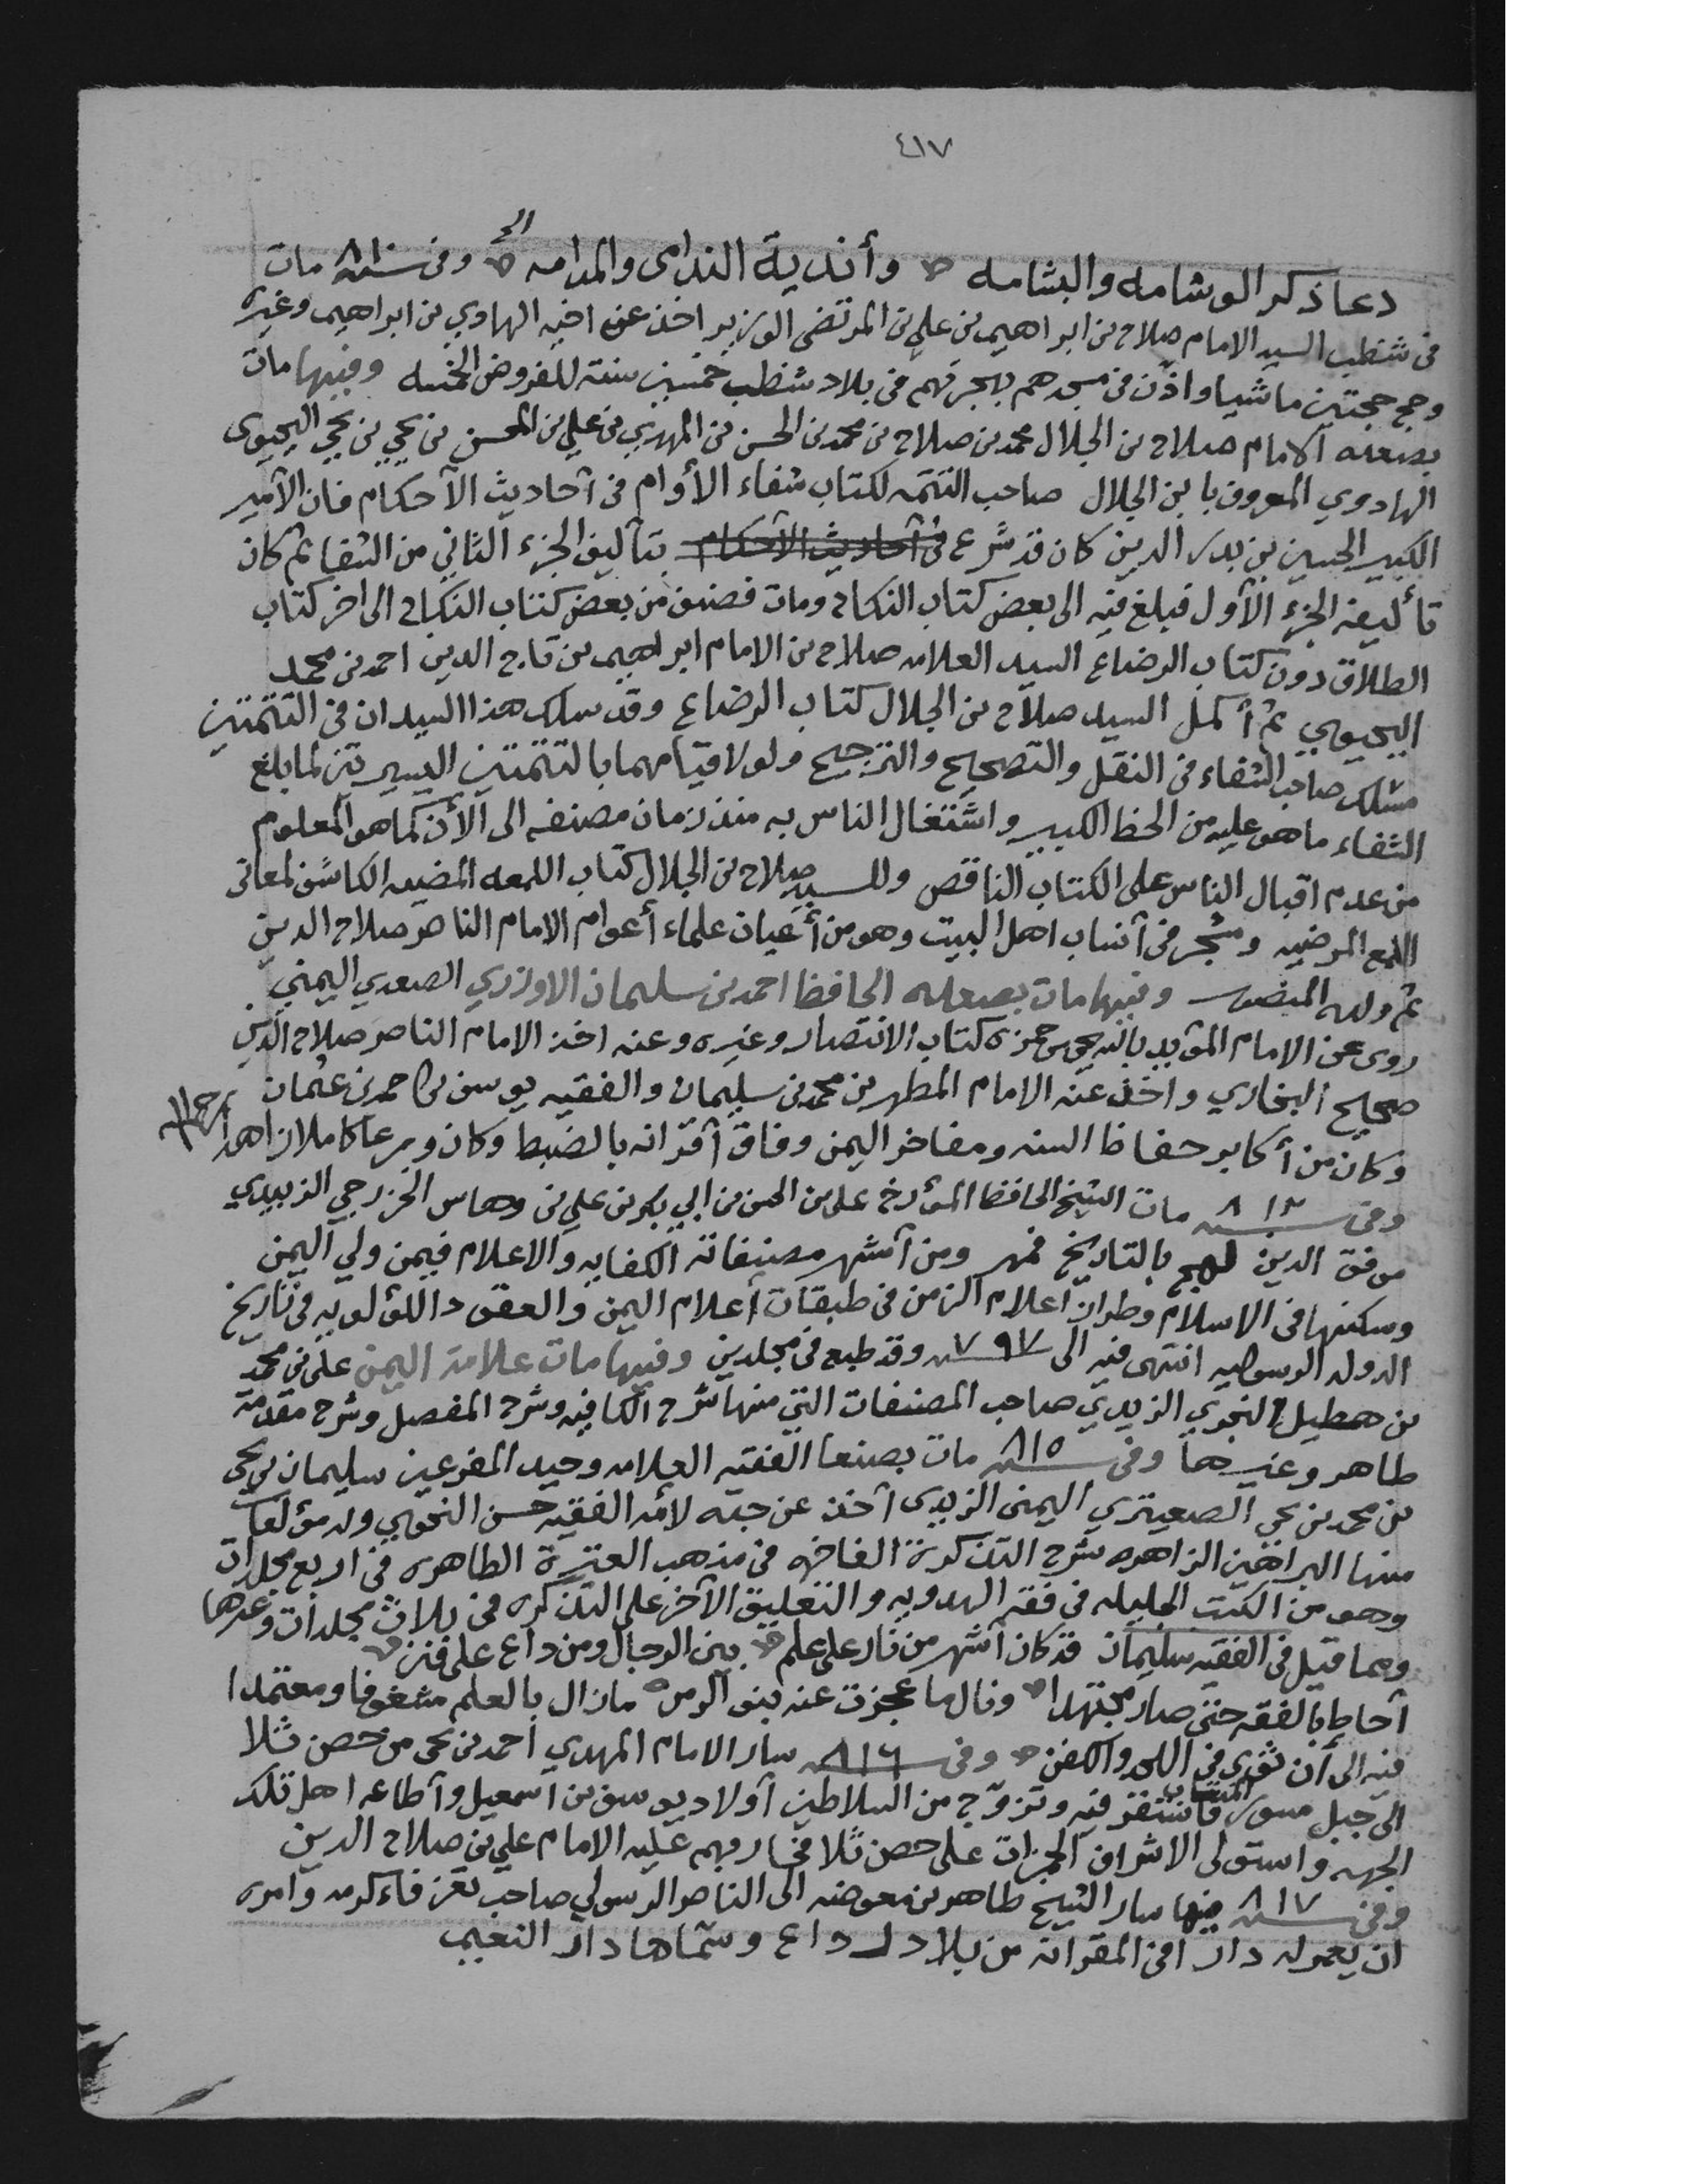 ٤١٧
دعا ذكر الوشامه والبشامه وأندية الندامى والمدامه الخ وفى سنة ٨١٠ مات
فى شظب السيد الامام صلاح بن ابراهيم بن علي بن المرتضى الوزير اخذ عن اخيه الهادي بن ابراهيم وغيره
وحج حجتين ماشيا واذّن فى مسجدهم بهجرتهم فى بلاد شظب خمسين سنة للفروض الخمسه وفيها مات
بصعده الامام صلاح بن الجلال محمد بن صلاح بن محمد بن الحسن بن المهدي بن علي بن المحسن بن يحي بن يحي اليحيوى
الهادوي المعروف بابن الجلال صاحب التتمه لكتاب شفاء الأوام فى أحاديث الأحكام فان الأمير
الكبير الحسين بن بدر الدين كان قد شرع فى أحاديث الأحكام بتأليف الجزء الثاني من الشفا ثم كان
تأليفه الجزء الأول فبلغ فيه الى بعض كتاب النكاح ومات فصنف من بعض كتاب النكاح الى اخر كتاب
الطلاق دون كتاب الرضاع السيد العلامه صلاح بن الامام ابراهيم بن تاج الدين احمد بن محمد
اليحيوي ثم أكمل السيد صلاح بن الجلال كتاب الرضاع وقد سلك هذا السيدان فى التتمتين
مسلك صاحب الشفاء فى النقل والتصحيح والترجيح ولولا قيامهما بالتتمتين اليسيرتين لما بلغ
الشفاء ما هو عليه من الحظ الكبير واشتغال الناس به منذ زمان مصنفه الى الأن كما هو المعلوم
من عدم اقبال الناس على الكتاب الناقص وللسيد صلاح بن الجلال كتاب اللمعه المضيه الكاشف لمعانى
اللمع المرضيه ومشجر فى أنساب اهل البيت وهو من أعيان علماء أعوام الامام الناصر صلاح الدين
ثم ولده المنصور وفيها مات بصعده الحافظ احمد بن سليمان الاوزري الصعدي اليمني
روى عن الامام المؤيد بالله يحي بن حمزه كتاب الانتصار وغيره وعنه اخذ الامام الناصر صلاح الدين
صحيح البخاري واخذ عنه الامام المطهر بن محمد بن سليمان والفقيه يوسف بن احمد بن عثمان
وكان من أكابر حفاظ السنه ومفاخر اليمن وفاق أقرانه بالضبط وكان ورعا كاملا زاهدا
وفى سنة ٨١٢ مات الشيخ الحافظ المؤرخ علي بن الحسن بن ابي بكر بن علي بن وهاس الخزرجي الزبيدي
موفق الدين لهج بالتاريخ فمهر ومن أشهر مصنفاته الكفايه والاعلام فيمن ولي اليمن
وسكنها فى الاسلام وطراز أعلام الزمن فى طبقات أعلام اليمن والعقود اللؤلويه فى تاريخ
الدوله الرسوليه انتهى فيه الى سنة ٧٩٧ وقد طبع فى مجلدين وفيها مات علامة اليمن علي بن محمد
بن هطيل النجري الزيدي صاحب المصنفات التي منها شرح الكافيه وشرح المفصل وشرح مقدمة
طاهر وغيرها وفى سنة ٨١٥ مات بصنعا الفقيه العلامه وحيد المفرعين سليمان بن يحي
بن محمد بن يحي الصعيتري اليمنى الزيدى أخذ عن جده لأمه الفقيه حسن النحوي وله مؤلفات
منها البراهين الزاهره شرح التذكرة الفاخره فى مذهب العترة الطاهره فى اربع مجلدات
وهو من الكتب الجليله فى فقه الهدويه والتعليق الآخر على التذكره فى ثلاث مجلدات وغيرها
ومما قيل فى الفقيه سليمان قد كان أشهر من نار على علم بين الرجال ومن داع على فنن
أحاط بالفقه حتى صار مجتهدا ونال ما عجزت عنه بنو الزمن مازال بالعلم مشغوفا ومعتمدا
فيه الى أن ثوى فى اللحد والكفن وفى سنة ٨١٦ سار الامام المهدي أحمد بن يحي من حصن ثلا
الى جبل مسور المنتاب فاستقر فيه وتزوج من السلاطين أولاد يوسف بن اسمعيل وأطاعه اهل تلك
الجهه واستولى الاشراف الحمزات على حصن ثلا فحاربهم عليه الامام علي بن صلاح الدين
وفى سنة ٨١٧ فيها سار الشيخ طاهر بن معوضه الى الناصر الرسولي صاحب تعز فاكرمه وأمره
ان يعمر له دارا فى المقرانة من بلاد رداع وسماها دار النعيم